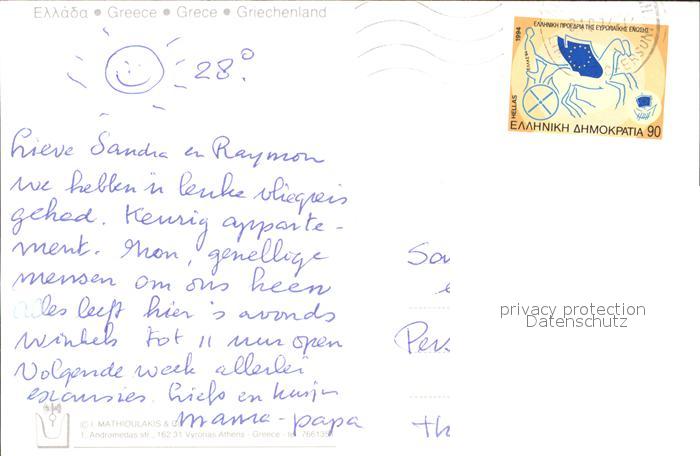 Ελλάδα • Greece • Grece • Griechenland
28°
ΕΛΛΗΝΙΚΗ ΠΡΟΕΔΡΙΑ ΤΗΣ ΕΥΡΩΠΑΪΚΗΣ ΕΝΩΣΗΣ
1994
HELLAS
ΕΛΛΗΝΙΚΗ ΔΗΜΟΚΡΑΤΙΑ 90
Lieve Sandra en Raymon
we hebben 'n leuke vliegreis
gehad. Keurig apparte-
ment. Mon, gezellige
mensen om ons heen
alles leeft hier 's avonds
winkels tot 11 uur open
Volgende week allerlei
excursies. Liefs en kusjes
mama-papa
Per
th
privacy protection
Datenschutz
© I. MATHIOULAKIS &
1, Andromedas str., 162 31 Vyronas Athens - Greece - tel 766135